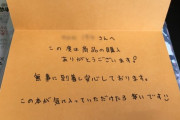 さんへ
この度は商品の購入
ありがとうございます!
無事に到着し安心しております。
この本が気に入っていただけたら幸いです☺